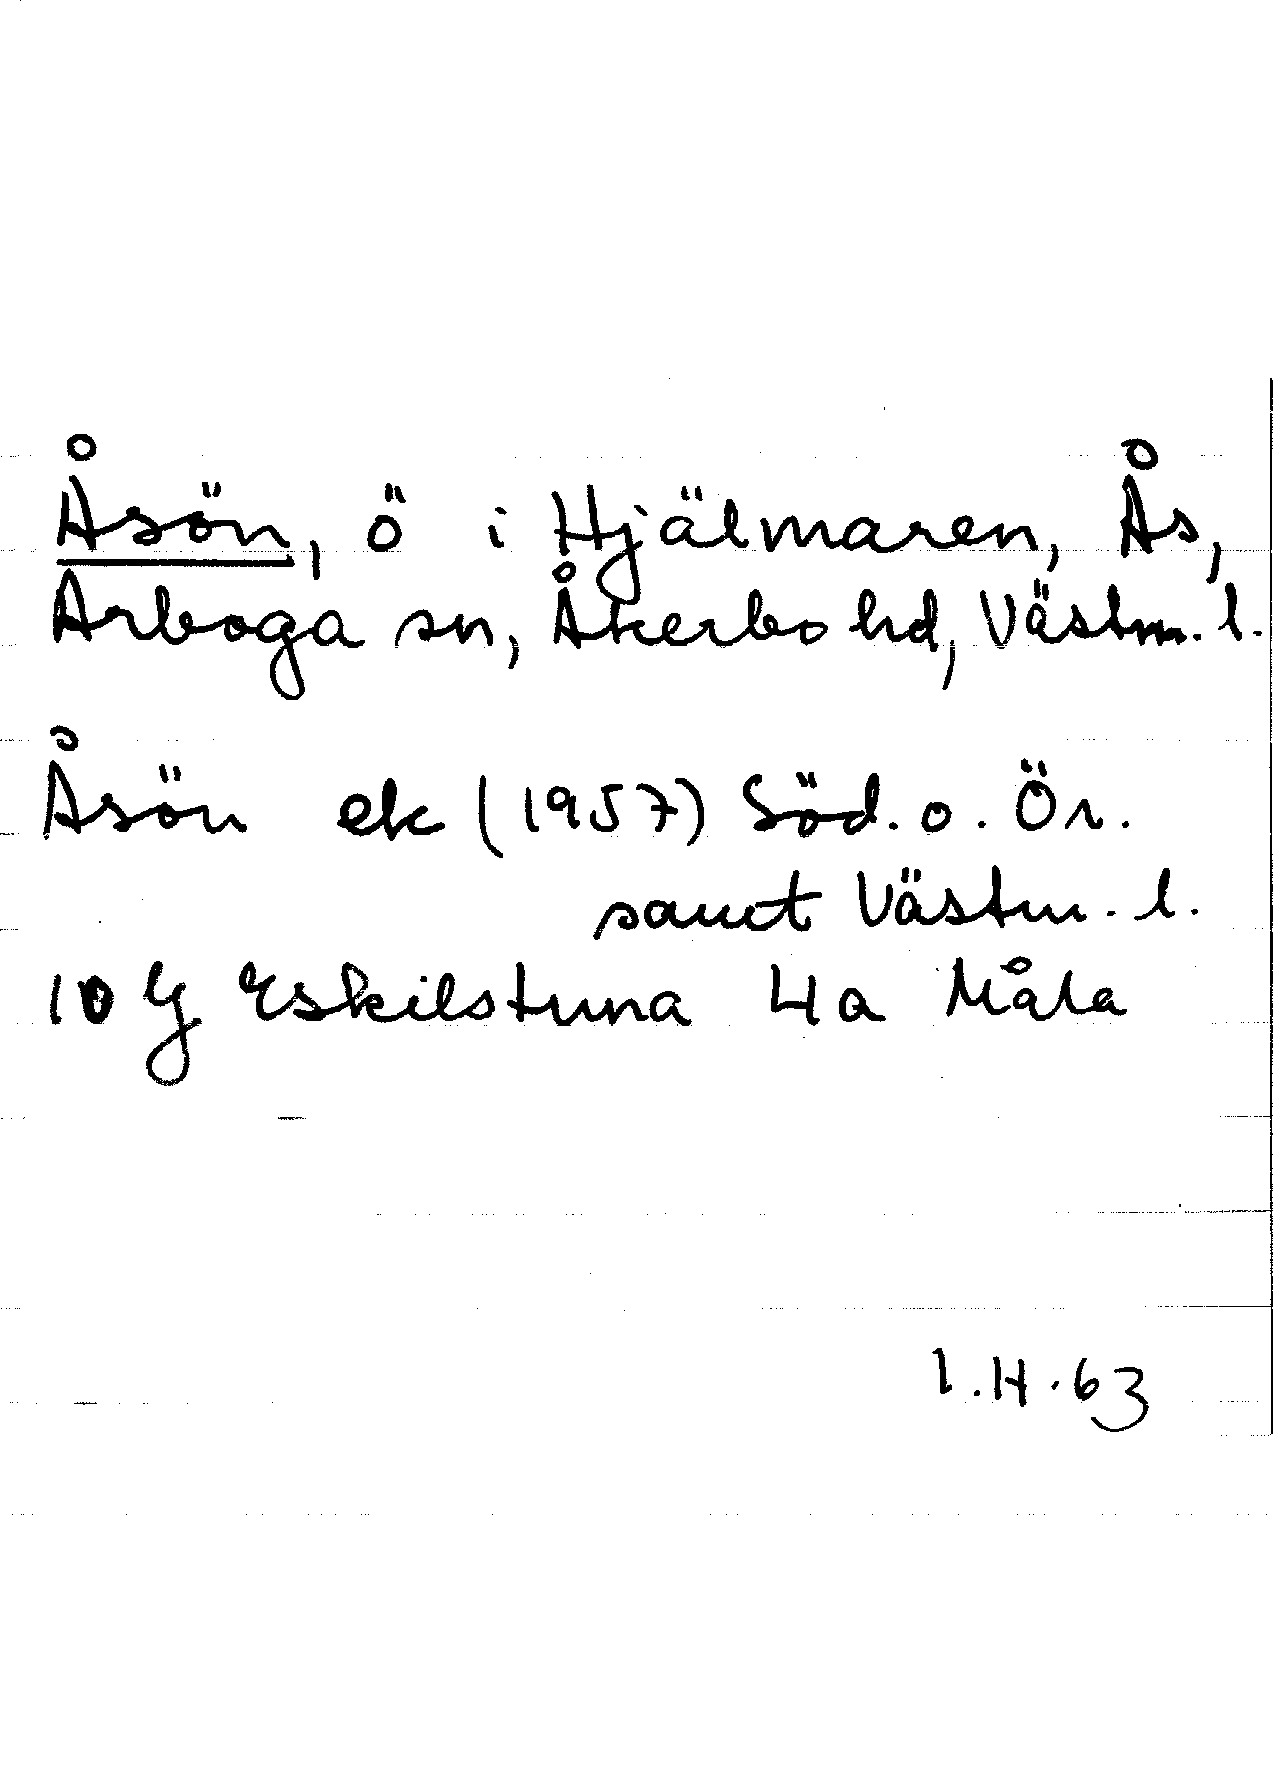 Åsön, ö i Hjälmaren, Ås,
Arboga sn, Åkerbo hd, Västm. l.
Åsön ek (1957) Söd. o. Ör.
samt Västm. l.
10 G Eskilstuna 4a Måla
I.H.63